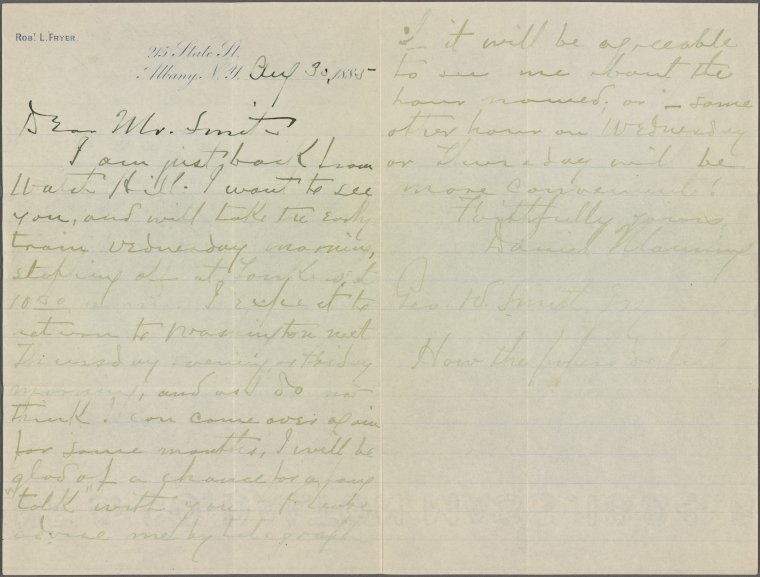 ROBT. L. FRYER.
215 State St.
Albany, N.Y. Aug 30, 1885
Dear Mr. Smith
I am just back from
Watch Hill. I want to see
you, and will take the early
train Wednesday morning,
stopping off at Yonkers at
10:30 I expect to
return to Washington next
Thursday evening or Friday
morning, and as I do not
think I can come over again
for some months, I will be
glad of a chance for a long
"talk" with you. Please
advise me by telegraph
if it will be agreeable
to see me about the
hour named, or if some
other hour on Wednesday
or Thursday will be
more convenient.
Faithfully yours,
Daniel Manning
Geo. W. Smith, Esq
How the papers do lie!